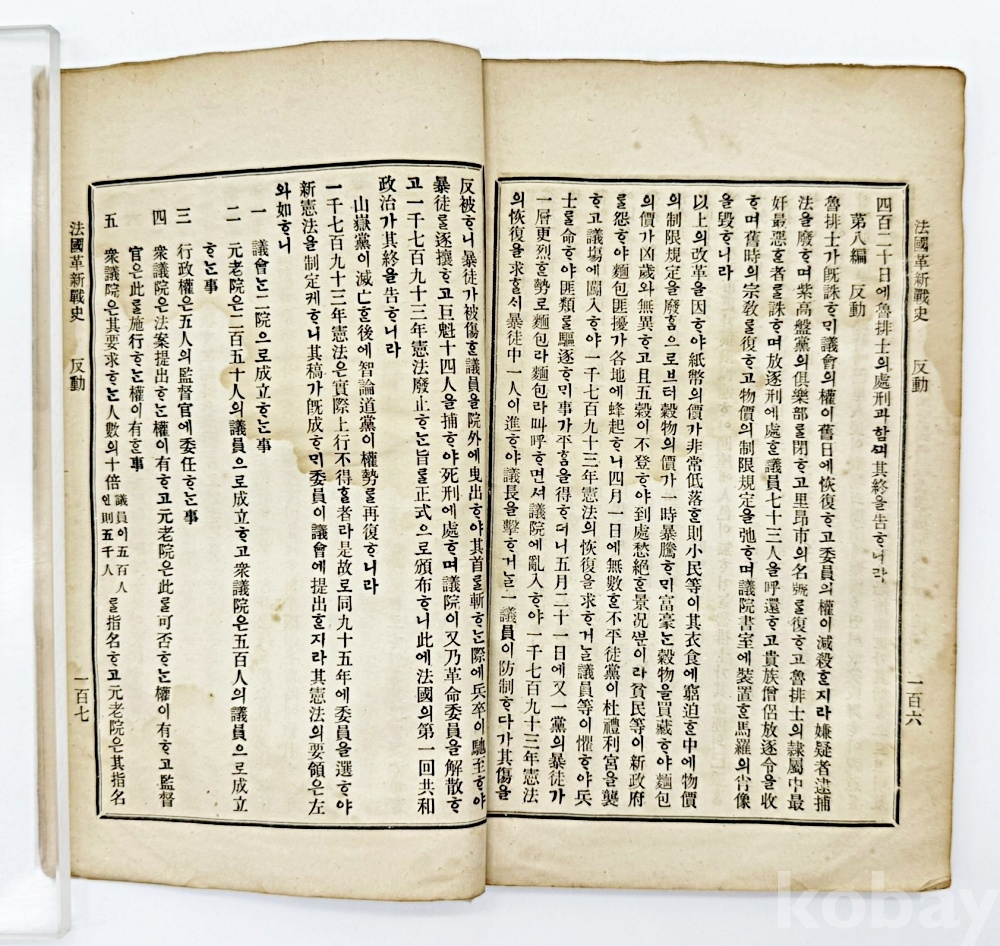 法國革新戰史　反動　一百六
四百二十日에魯排士의處刑과함ᄭᅴ其終을告ᄒᆞ니라
第八編　反動
魯排士가旣誅ᄒᆞᄆᆡ議會의權이舊日에恢復ᄒᆞ고委員의權이減殺ᄒᆞᆫ지라嫌疑者逮捕
法을廢ᄒᆞ며紫高盤黨의俱樂部ᄅᆞᆯ閉ᄒᆞ고里昂市의名號ᄅᆞᆯ復ᄒᆞ고魯排士의隸屬中最
奸最惡ᄒᆞᆫ者ᄅᆞᆯ誅ᄒᆞ며放逐刑에處ᄒᆞᆫ議員七十三人을呼還ᄒᆞ고貴族僧侶放逐令을收
ᄒᆞ며舊時의宗敎ᄅᆞᆯ復ᄒᆞ고物價의制限規定을弛ᄒᆞ며議院書室에裝置ᄒᆞᆫ馬羅의肖像
을毁ᄒᆞ니라
以上의改革을因ᄒᆞ야紙幣의價가非常低落ᄒᆞᆫ則小民等이其衣食에窘迫ᄒᆞᆫ中에物價
의制限規定을廢ᄒᆞᆷ으로브터穀物의價가一時暴騰ᄒᆞᄆᆡ富豪ᄂᆞᆫ穀物을買藏ᄒᆞ야麵包
의價가凶歲와無異ᄒᆞ고且五穀이不登ᄒᆞ야到處愁絶ᄒᆞᆫ景况ᄲᅮᆫ이라貧民等이新政府
ᄅᆞᆯ怨ᄒᆞ야麵包匪擾가各地에蜂起ᄒᆞ니四月一日에無數ᄒᆞᆫ不平徒黨이杜禮利宮을襲
ᄒᆞ고議塲에闖入ᄒᆞ야一千七百九十三年憲法의恢復을求ᄒᆞ거ᄂᆞᆯ議員等이懼ᄒᆞ야兵
士ᄅᆞᆯ命ᄒᆞ야匪類ᄅᆞᆯ驅逐ᄒᆞᄆᆡ事가平ᄒᆞᆷ을得ᄒᆞ더니五月二十一日에又一黨의暴徒가
一層更烈ᄒᆞᆫ勢로麵包라麵包라叫呼ᄒᆞ면셔議院에亂入ᄒᆞ야一千七百九十三年憲法
의恢復을求ᄒᆞᆯᄉᆡ暴徒中一人이進ᄒᆞ야議長을擊ᄒᆞ거ᄂᆞᆯ一議員이防制ᄒᆞ다가其傷을
反被ᄒᆞ니暴徒가被傷ᄒᆞᆫ議員을院外에曳出ᄒᆞ야其首ᄅᆞᆯ斬ᄒᆞᄂᆞᆫ際에兵卒이馳至ᄒᆞ야
暴徒ᄅᆞᆯ逐攘ᄒᆞ고巨魁十四人을捕ᄒᆞ야死刑에處ᄒᆞ며議院이又乃革命委員을解散ᄒᆞ
고一千七百九十三年憲法廢止ᄒᆞᄂᆞᆫ旨ᄅᆞᆯ正式으로頒布ᄒᆞ니此에法國의第一回共和
政治가其終을告ᄒᆞ니라
山嶽黨이滅亡ᄒᆞᆫ後에智論道黨이權勢ᄅᆞᆯ再復ᄒᆞ니라
一千七百九十三年憲法은實際上行不得ᄒᆞᆯ者라是故로同九十五年에委員을選ᄒᆞ야
新憲法을制定케ᄒᆞ니其稿가旣成ᄒᆞᄆᆡ委員이議會에提出ᄒᆞᆫ지라其憲法의要領은左
와如ᄒᆞ니
一　議會ᄂᆞᆫ二院으로成立ᄒᆞᄂᆞᆫ事
二　元老院은二百五十人의議員으로成立ᄒᆞ고衆議院은五百人의議員으로成立
ᄒᆞᄂᆞᆫ事
三　行政權은五人의監督官에委任ᄒᆞᄂᆞᆫ事
四　衆議院은法案提出ᄒᆞᄂᆞᆫ權이有ᄒᆞ고元老院은此ᄅᆞᆯ可否ᄒᆞᄂᆞᆫ權이有ᄒᆞ고監督
官은此ᄅᆞᆯ施行ᄒᆞᄂᆞᆫ權이有ᄒᆞᆫ事
五　衆議院은其要求ᄒᆞᄂᆞᆫ人數의十倍議員이五百人인則五千人ᄅᆞᆯ指名ᄒᆞ고元老院은其指名
法國革新戰史　反動　一百七
kobay